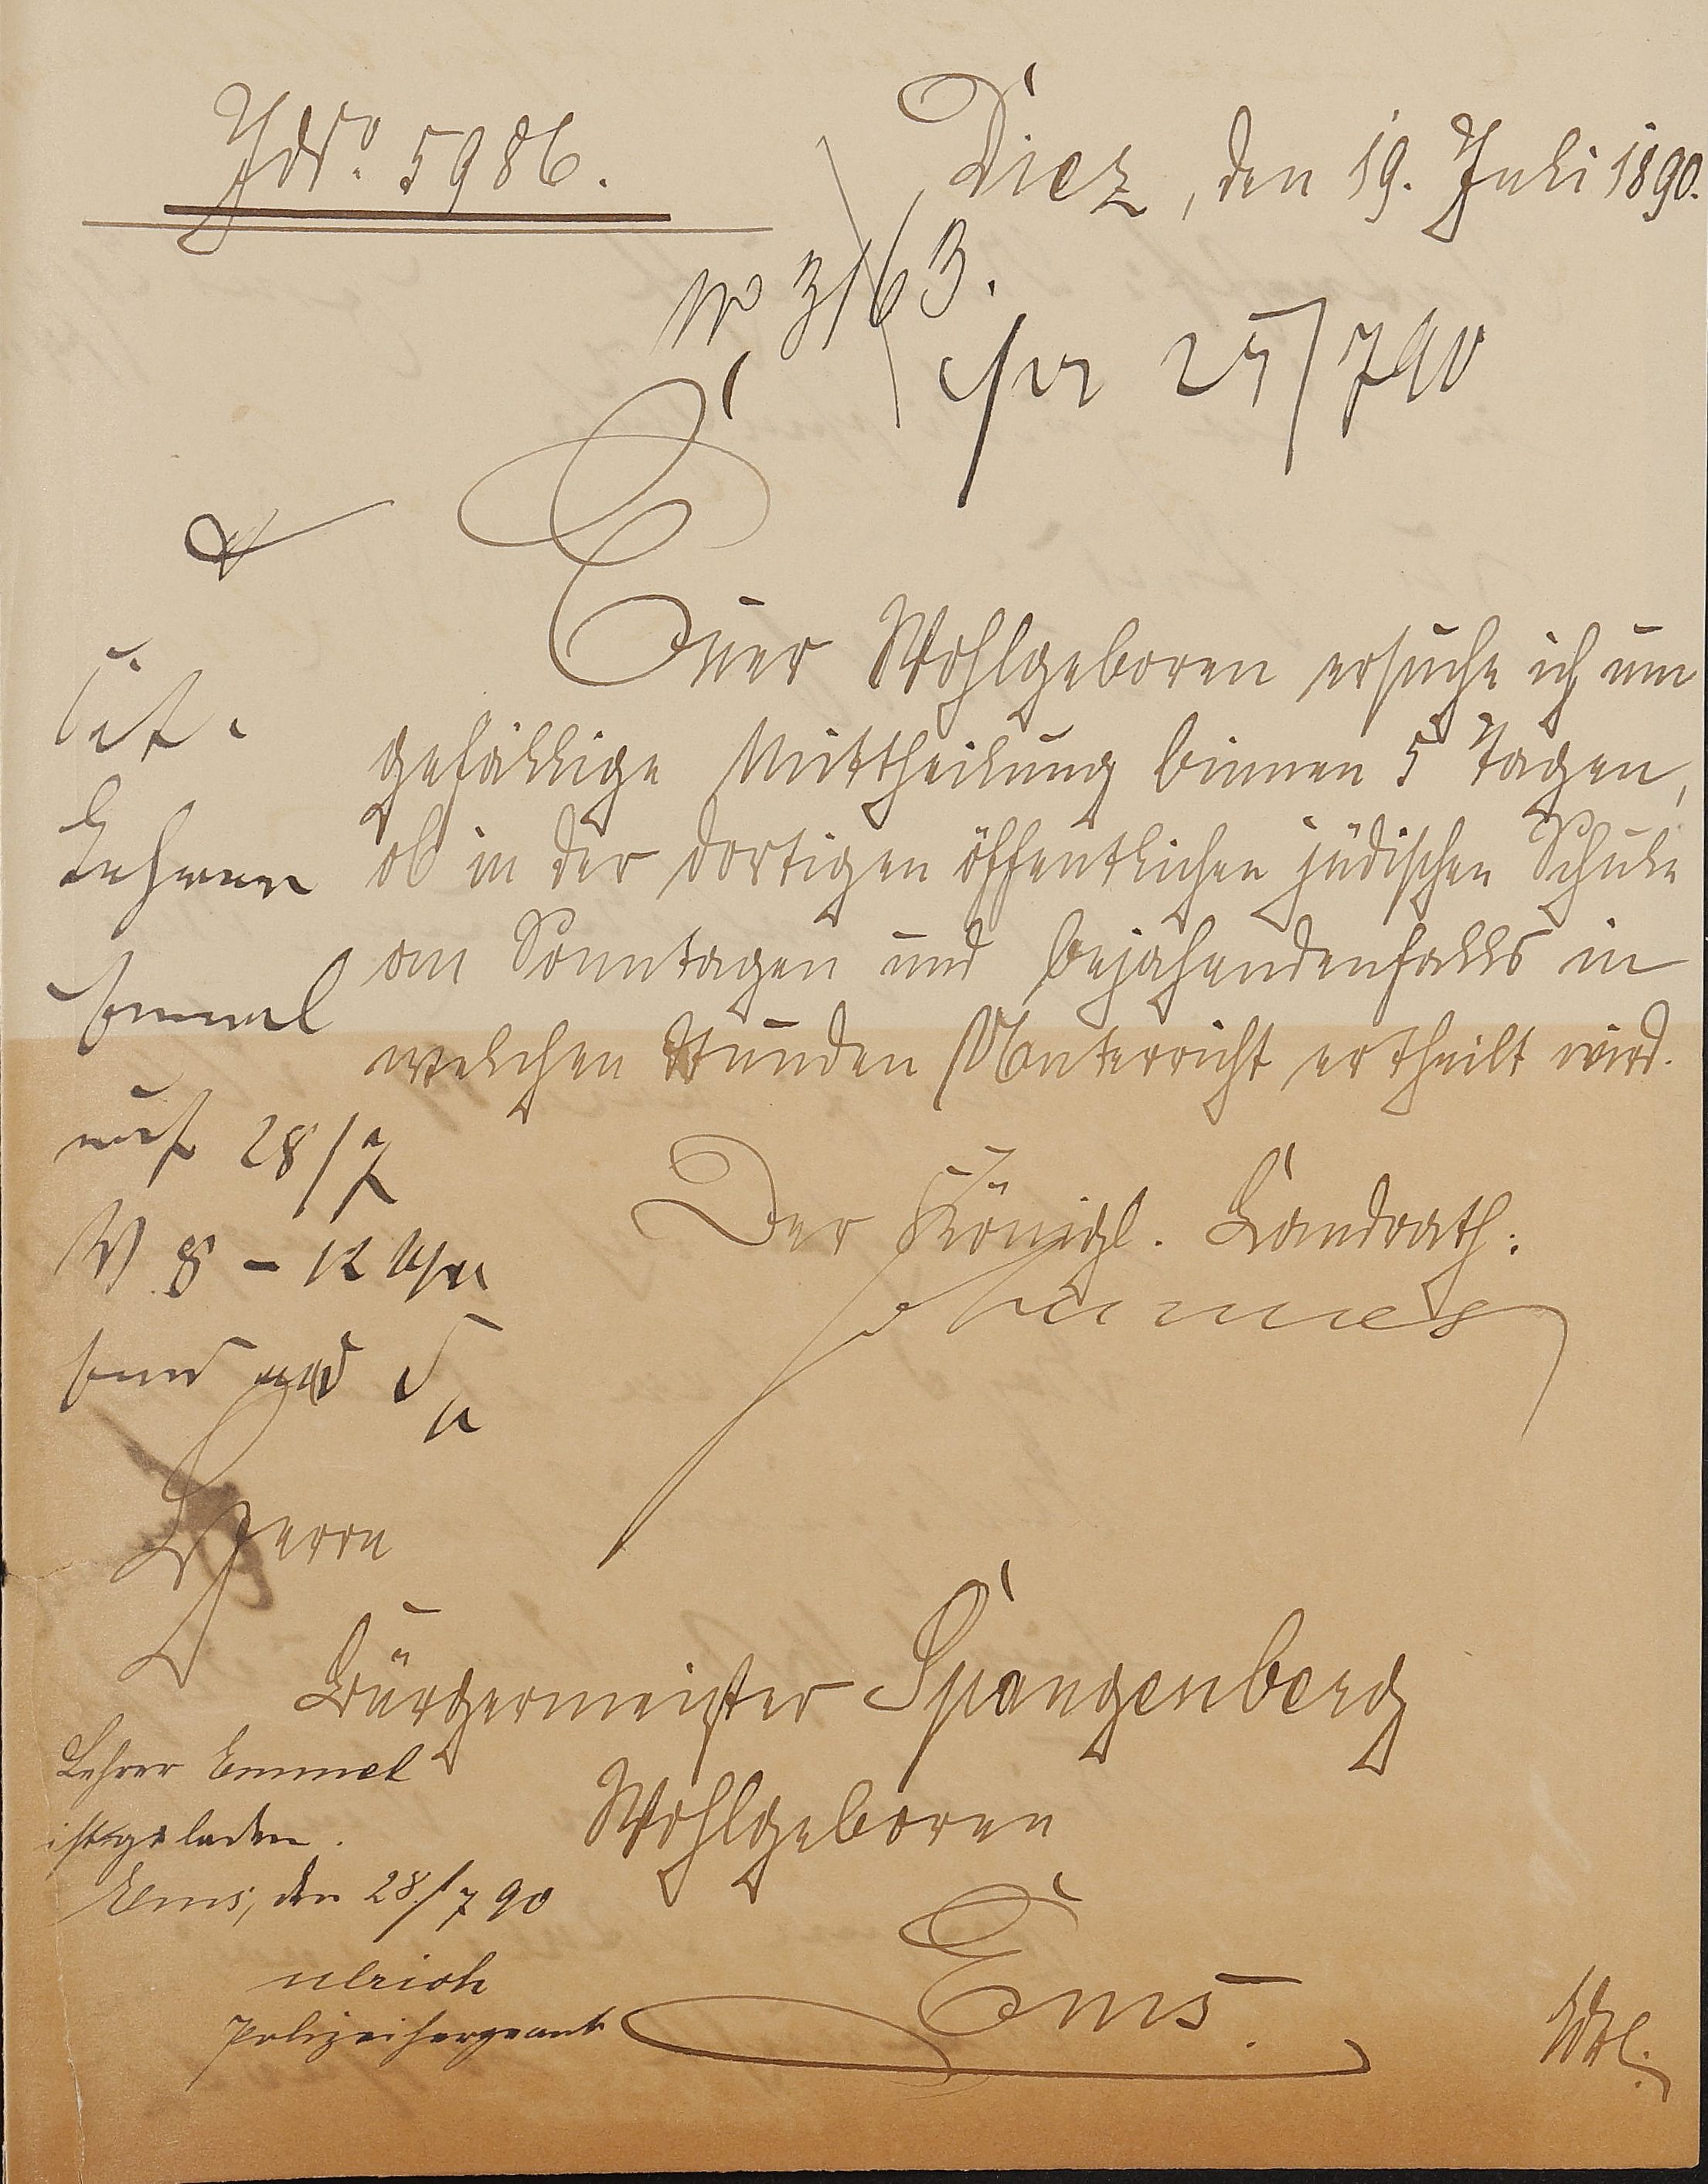 JNo. 5986.
Diez, den 19. Juli 1890.
No 3163.
pr 25/7 90
Euer Wohlgeboren ersuche ich um
gefällige Mittheilung binnen 5 Tagen,
ob in der dortigen öffentlichen jüdischen Schule
an Sonntagen und bejahendenfalls in
welchen Stunden Unterricht ertheilt wird.
Der Königl. Landrath:
Cit.
Lehrer
Emmel
auf 28/7
V 8 - 12 Uhr
Ems
Herrn
Bürgermeister Spangenberg
Wohlgeboren
Ems.
Lehrer Emmel
ist geladen.
Ems, den 28/7 90
Ulrich
Polizeisergeant